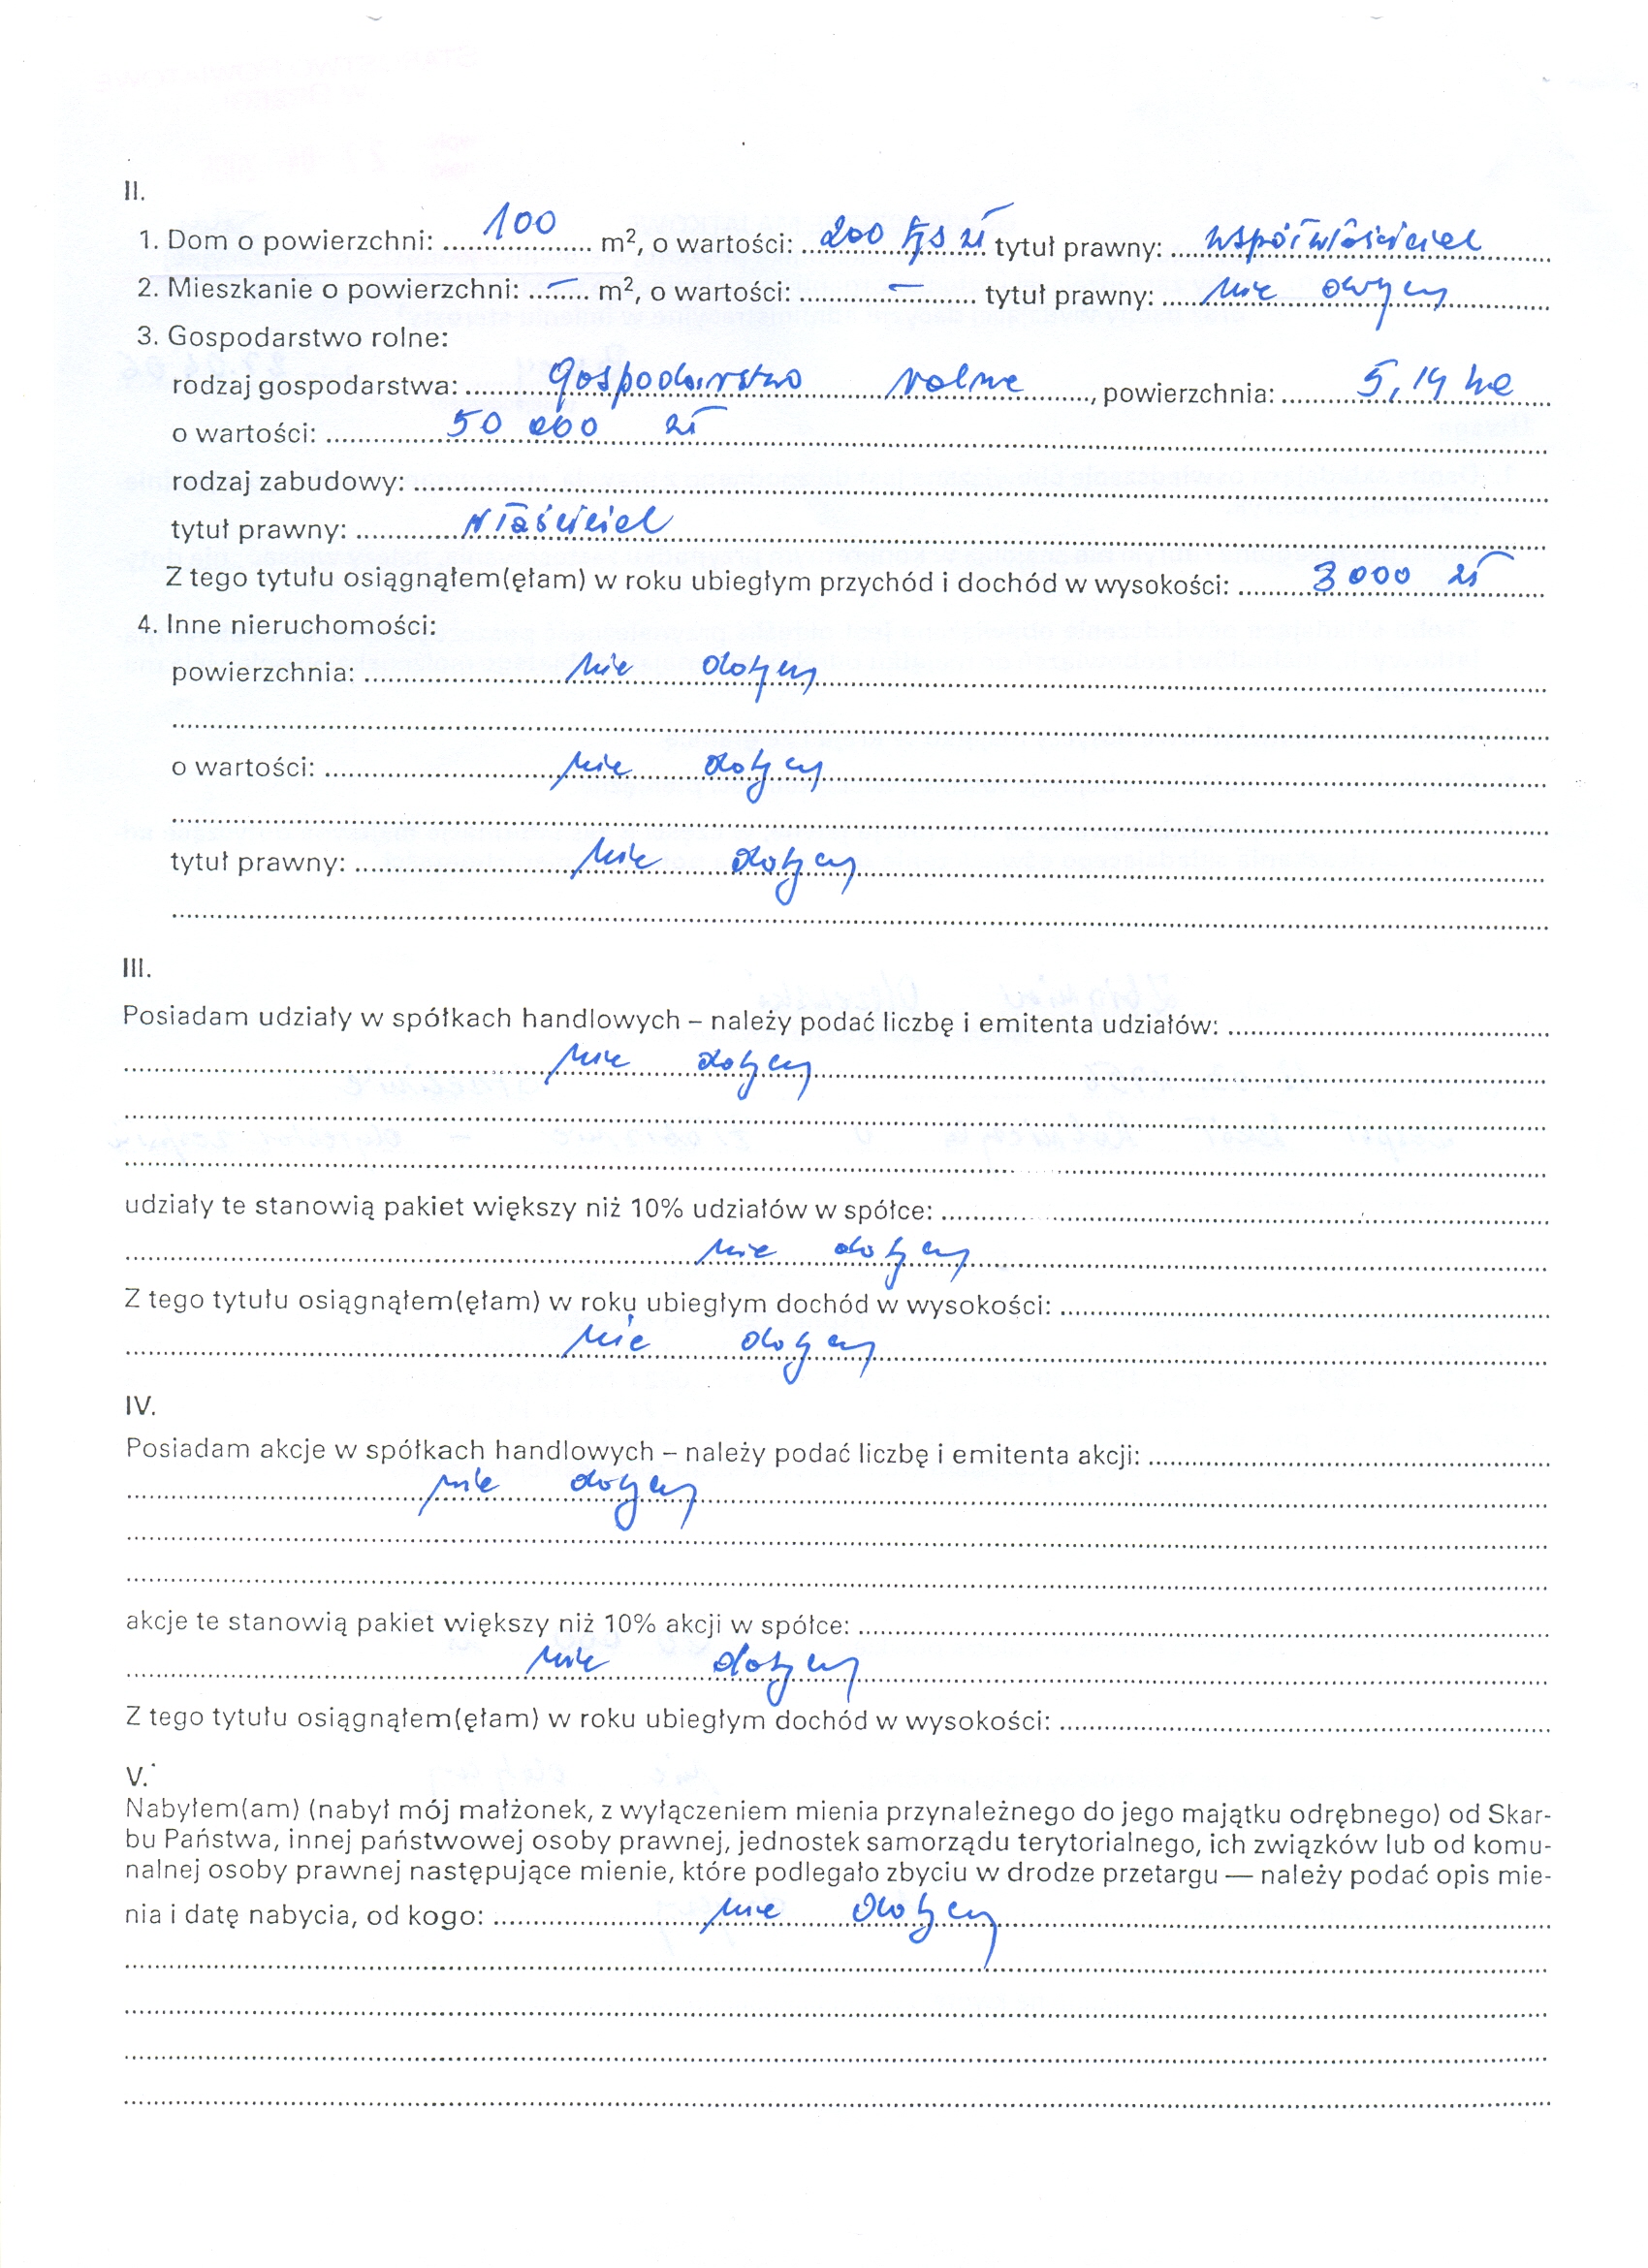 II.
1. Dom o powierzchni: 100 m², o wartości: 200 tys zł tytuł prawny: współwłaściciel
2. Mieszkanie o powierzchni: — m², o wartości: — tytuł prawny: nie dotyczy
3. Gospodarstwo rolne:
rodzaj gospodarstwa: Gospodarstwo rolne, powierzchnia: 5,14 ha
o wartości: 50 000 zł
rodzaj zabudowy:
tytuł prawny: właściciel
Z tego tytułu osiągnąłem(ęłam) w roku ubiegłym przychód i dochód w wysokości: 3 000 zł
4. Inne nieruchomości:
powierzchnia: nie dotyczy
o wartości: nie dotyczy
tytuł prawny: nie dotyczy
III.
Posiadam udziały w spółkach handlowych – należy podać liczbę i emitenta udziałów:
nie dotyczy
udziały te stanowią pakiet większy niż 10% udziałów w spółce:
nie dotyczy
Z tego tytułu osiągnąłem(ęłam) w roku ubiegłym dochód w wysokości:
nie dotyczy
IV.
Posiadam akcje w spółkach handlowych – należy podać liczbę i emitenta akcji:
nie dotyczy
akcje te stanowią pakiet większy niż 10% akcji w spółce:
nie dotyczy
Z tego tytułu osiągnąłem(ęłam) w roku ubiegłym dochód w wysokości:
V.
Nabyłem(am) (nabył mój małżonek, z wyłączeniem mienia przynależnego do jego majątku odrębnego) od Skar-
bu Państwa, innej państwowej osoby prawnej, jednostek samorządu terytorialnego, ich związków lub od komu-
nalnej osoby prawnej następujące mienie, które podlegało zbyciu w drodze przetargu — należy podać opis mie-
nia i datę nabycia, od kogo: nie dotyczy